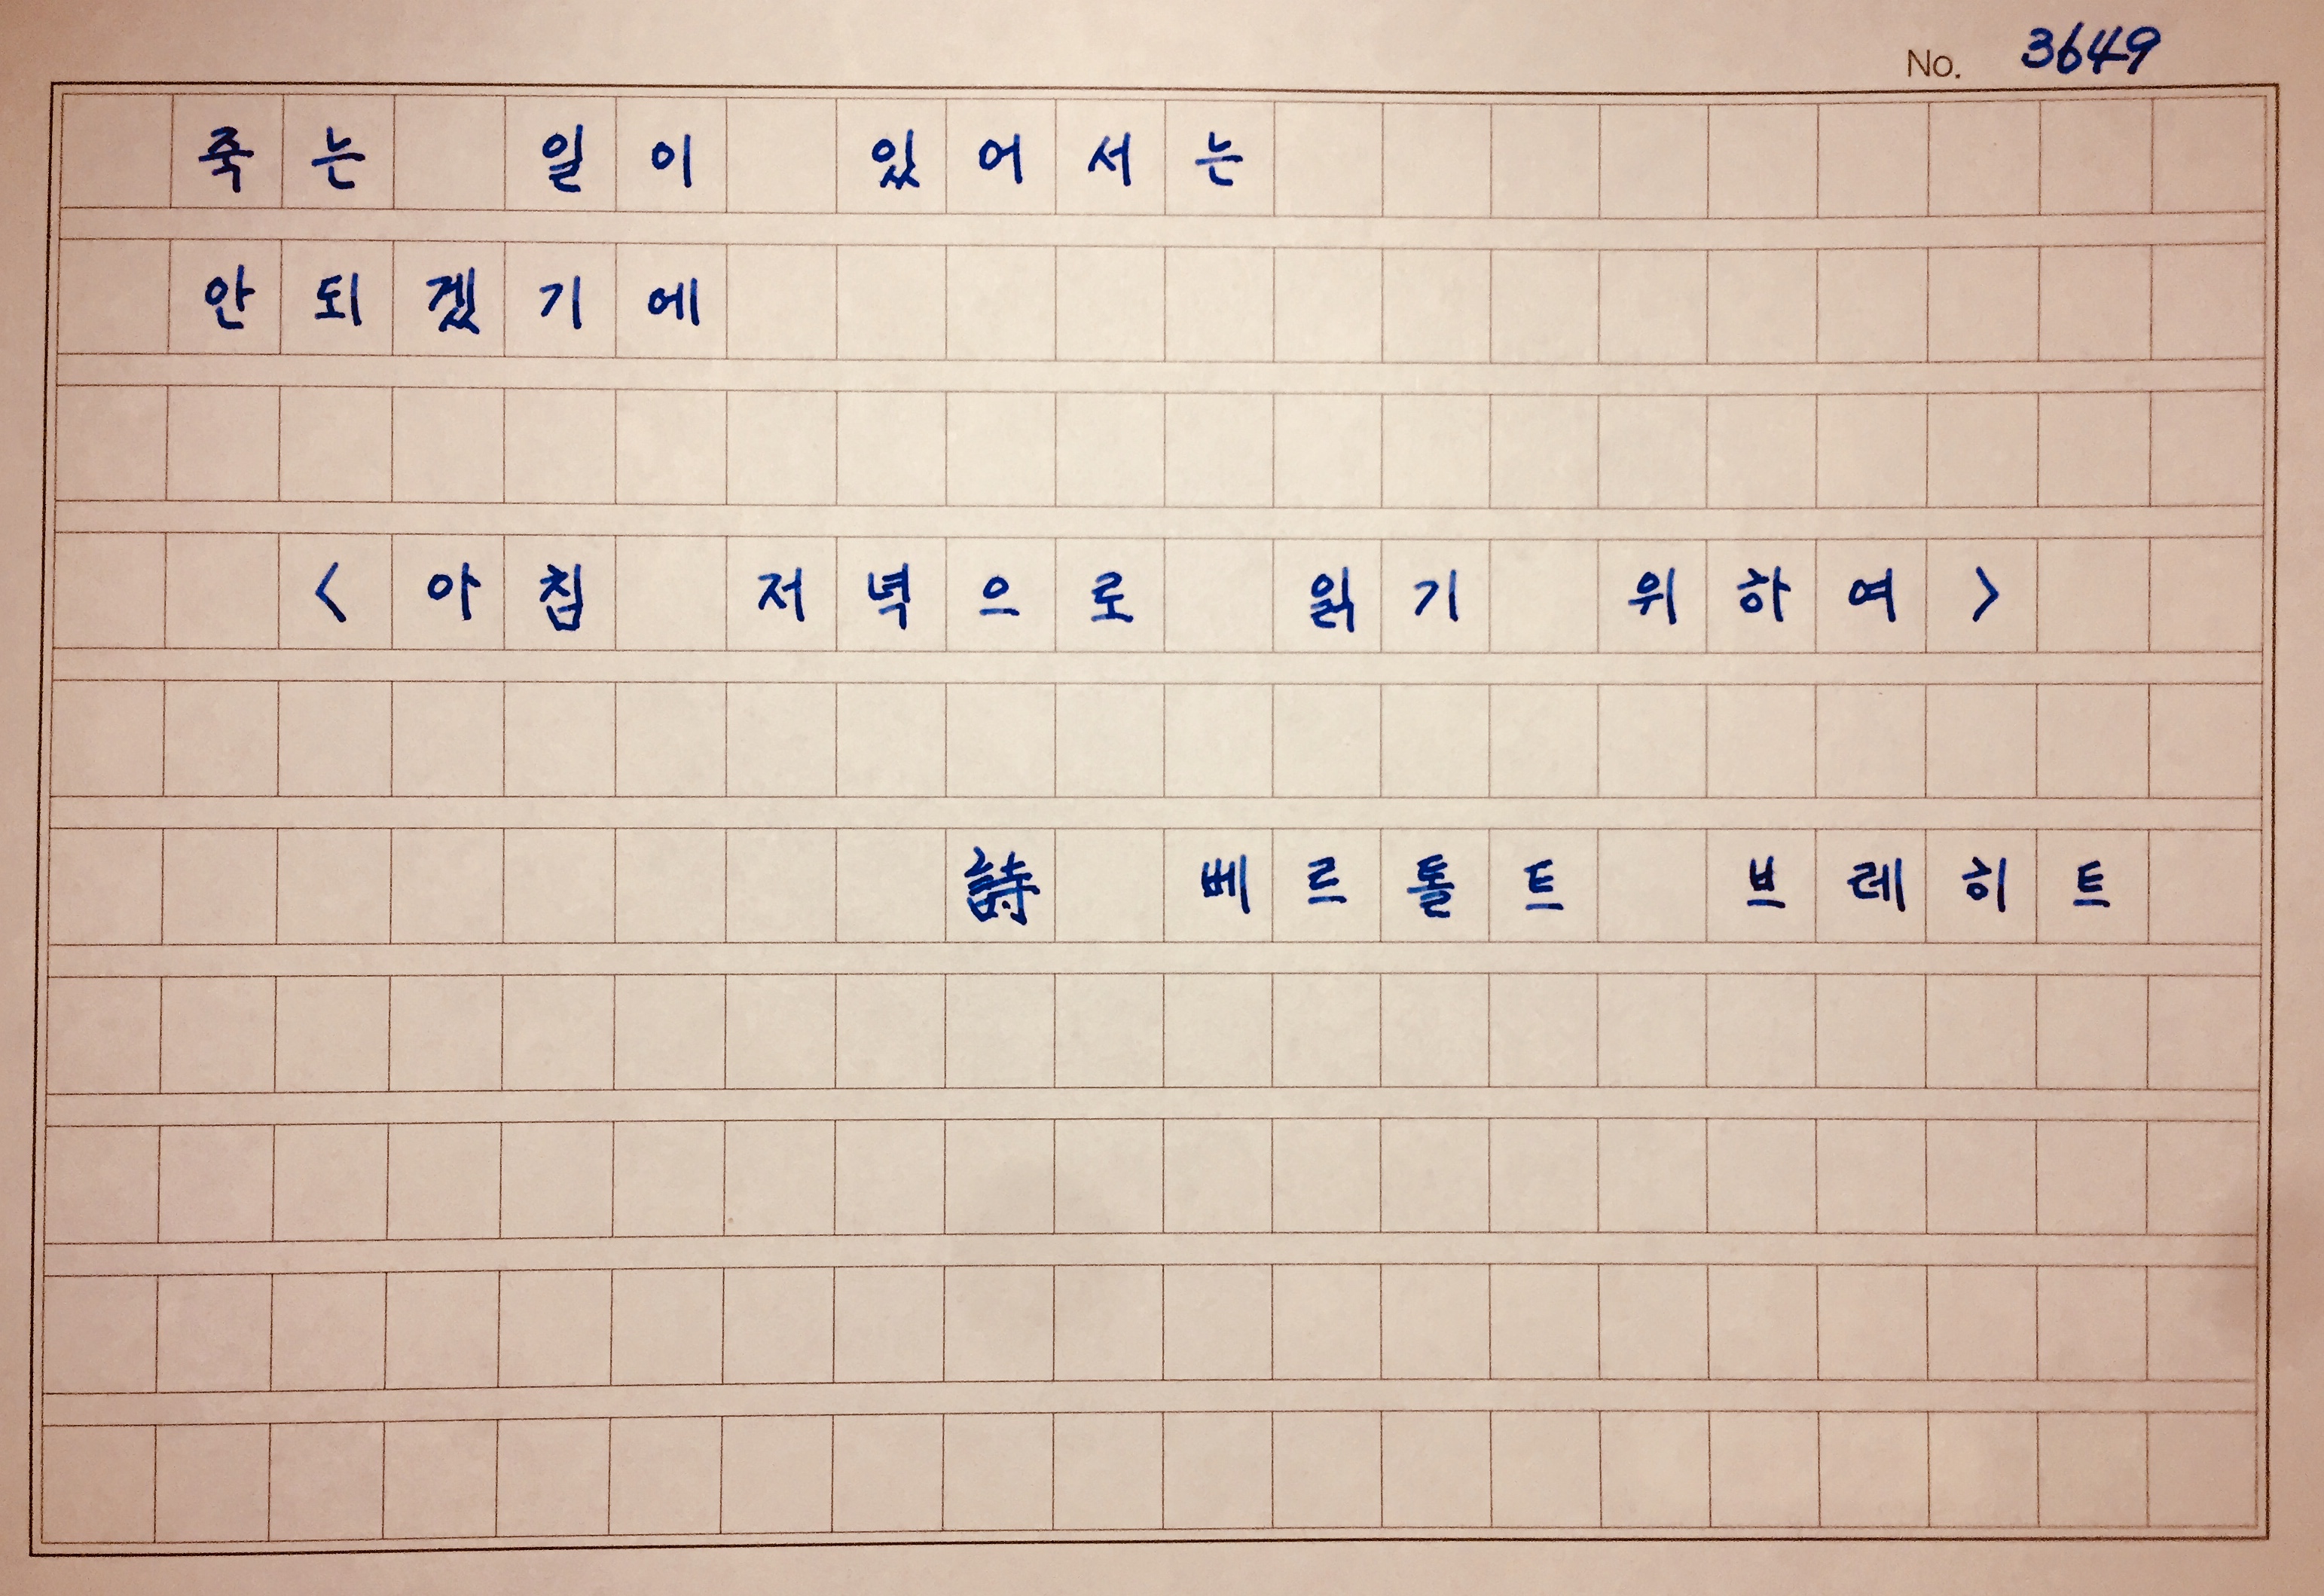 No. 3649
죽는 일이 있어서는
안되겠기에
<아침 저녁으로 읽기 위하여>
詩 베르톨트 브레히트